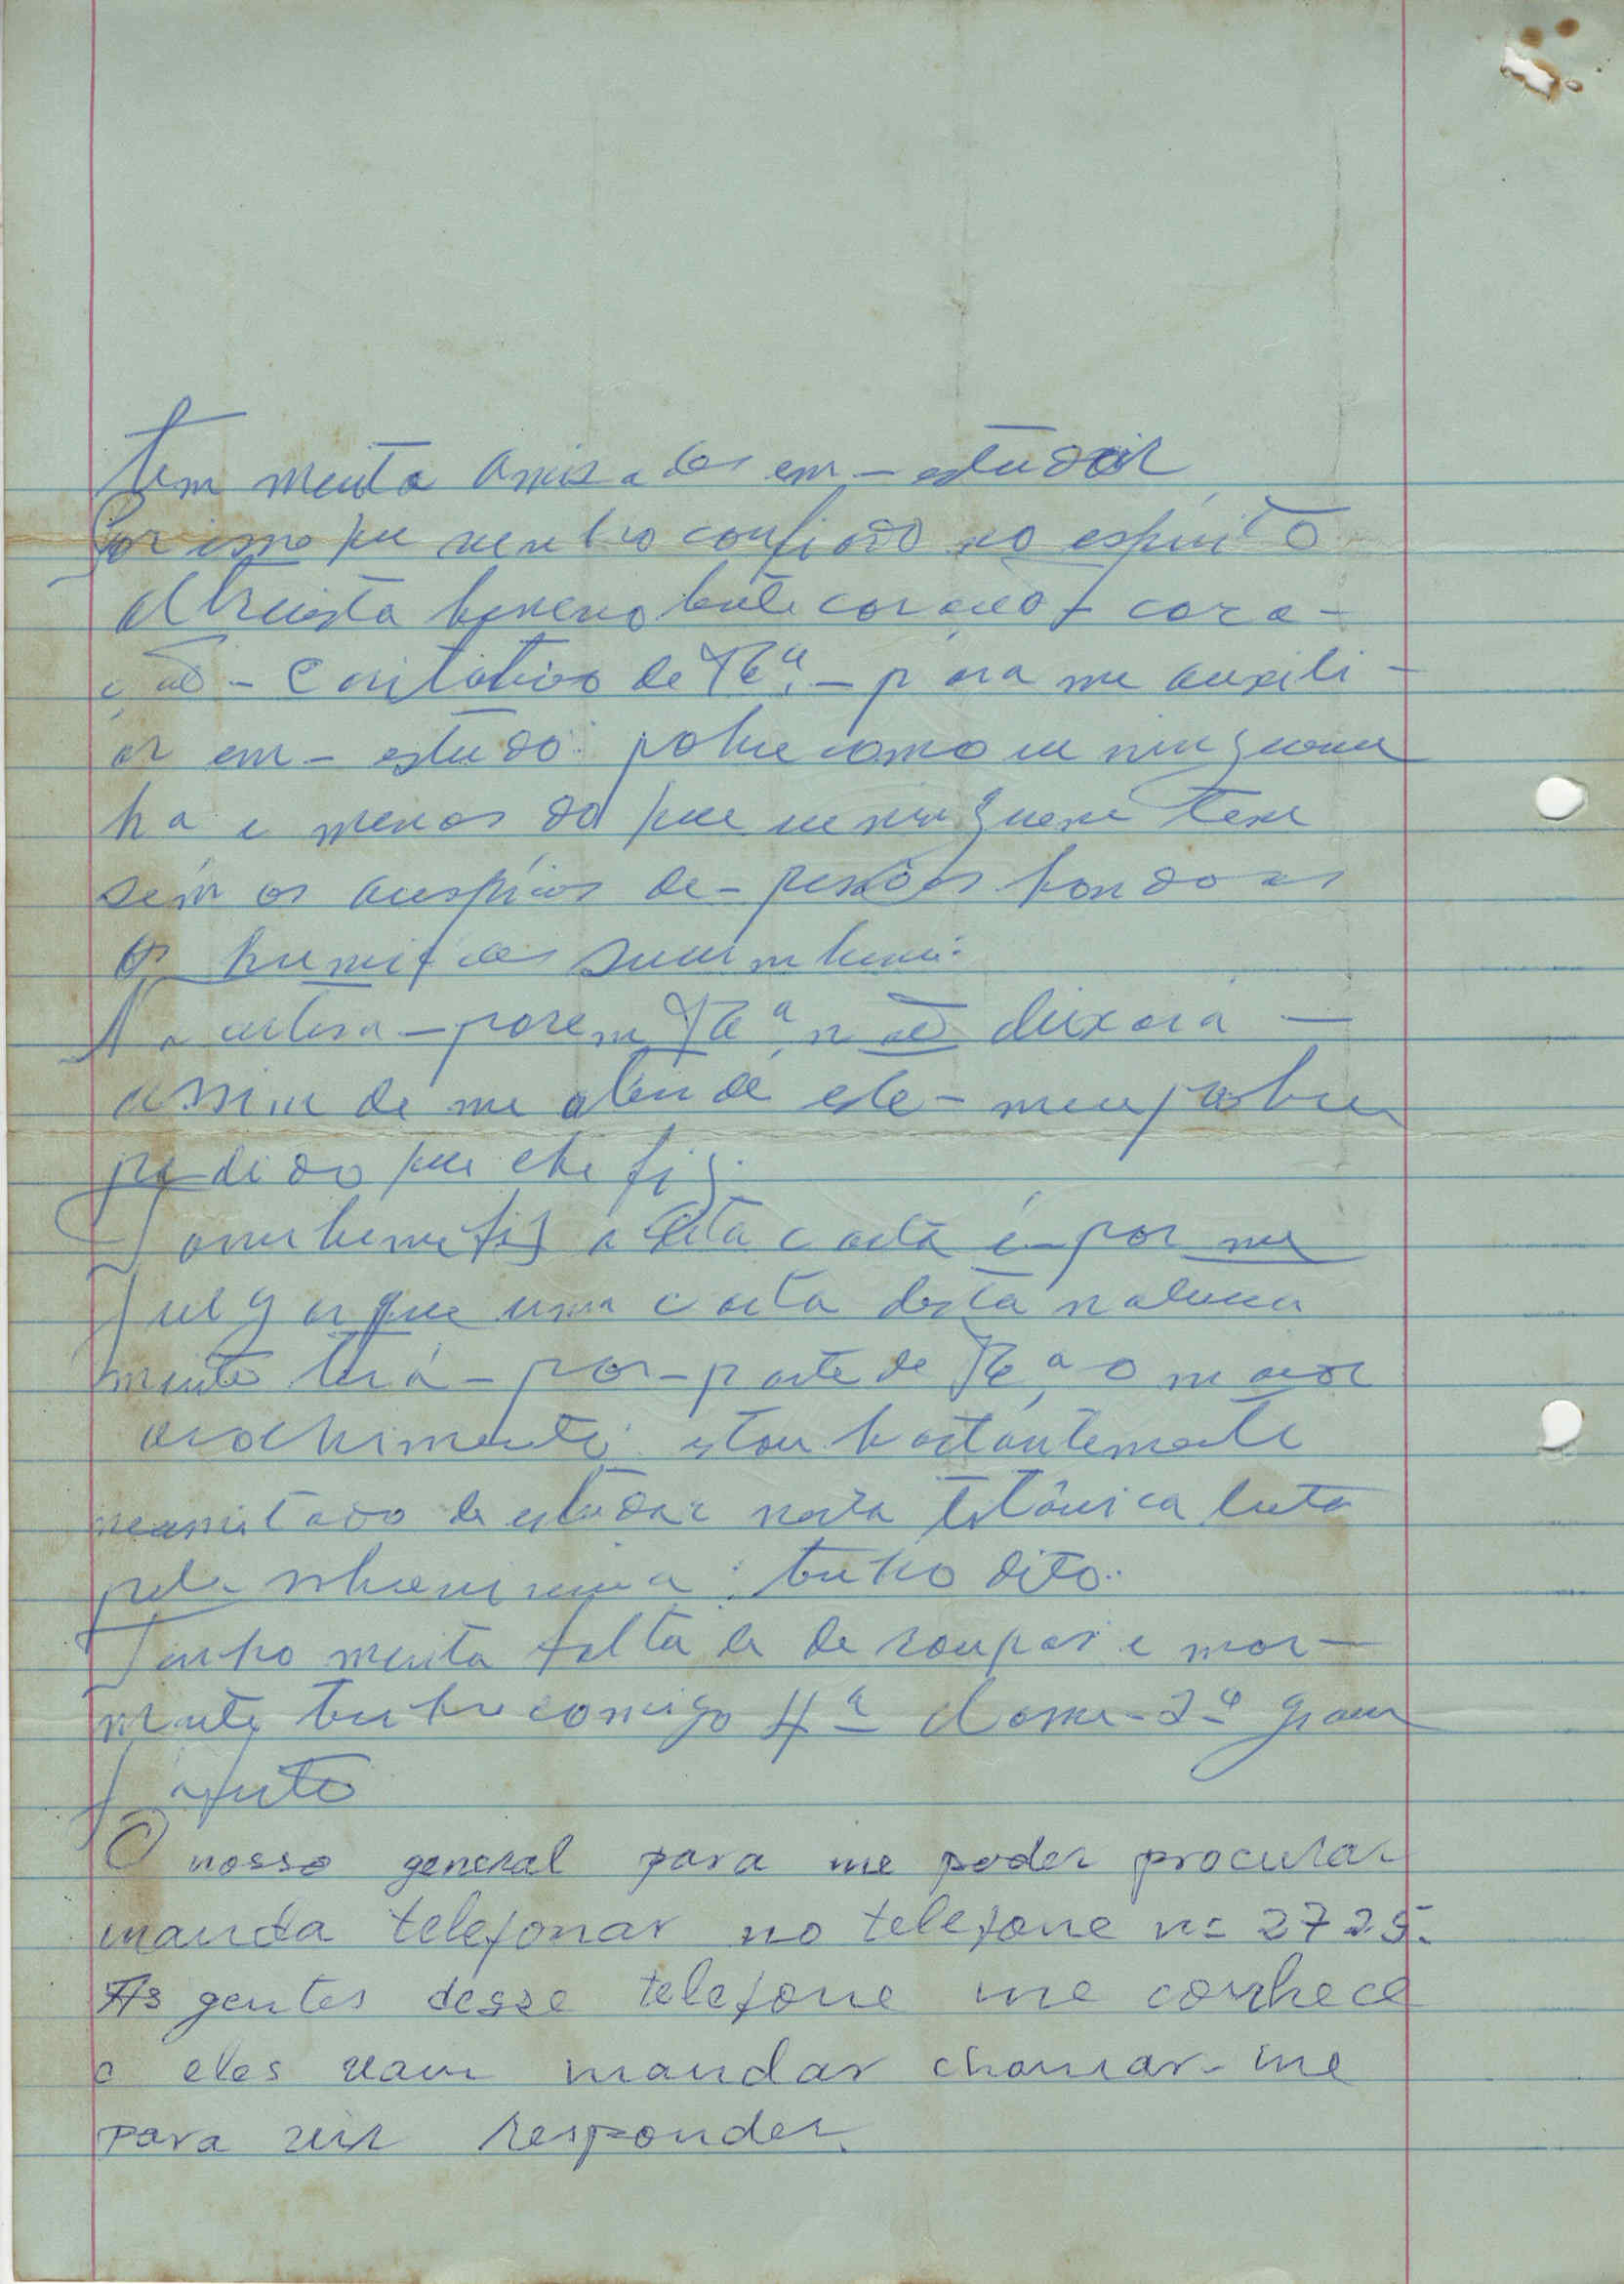 tem muita amisades em - estudar
Por isso que venho confiado no espirito
altruista benevolente coração - cora -
ção - Caritativo de V. Exª. - para me auxili -
ar em - estudo: pobre como eu ninguem
ha e menos do que eu ninguem tem
sem os auspicios de - pessoas bondosas
os humildes sucumbem.
Na certesa - porem V. Exª. não deixará -
assim de me atende este - meu pobre
pedido que lhe fiz.
Tambem fiz a esta carta é - por me
julgar que uma carta desta natura
mente terá - por - parte de V. Exª. o maior
acolhimento: estou bastantemente
necessitado de estudar nesta titânica luta
pela sobrevivencia: tenho dito.
Tenho muita falta de de roupas e mor -
mente tenho comigo 4ª classe - 2º grau
junto
O nosso general para me poder procurar
manda telefonar no telefone nº 2725.
As gentes desse telefone me conhece
e eles vam mandar chamar-me
para vir responder.